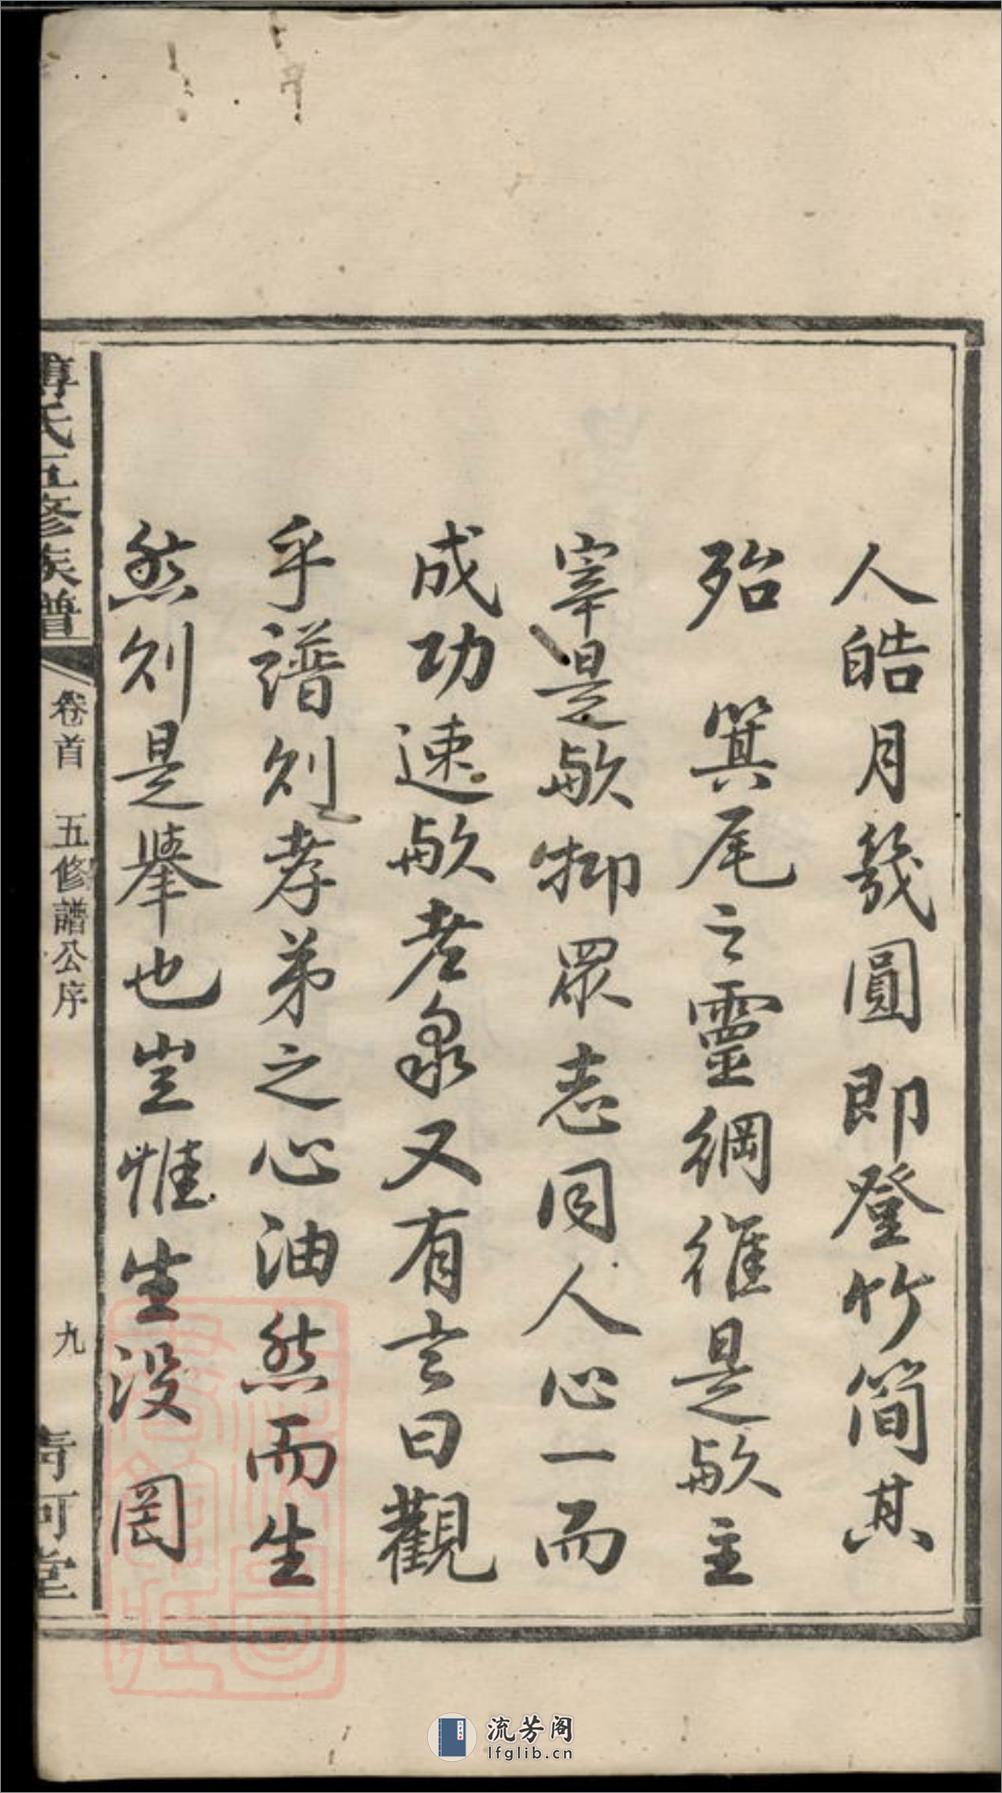 人皓月幾圓即登竹簡其
殆　箕尾之靈綱維是歟主
宰是歟抑眾志同人心一而
成功速歟老泉又有言曰觀
乎譜則孝弟之心油然而生
然則是舉也豈惟生沒罔
傅氏五修族譜
卷首　五修譜公序
九
清河堂
流芳阁
lfglib.cn